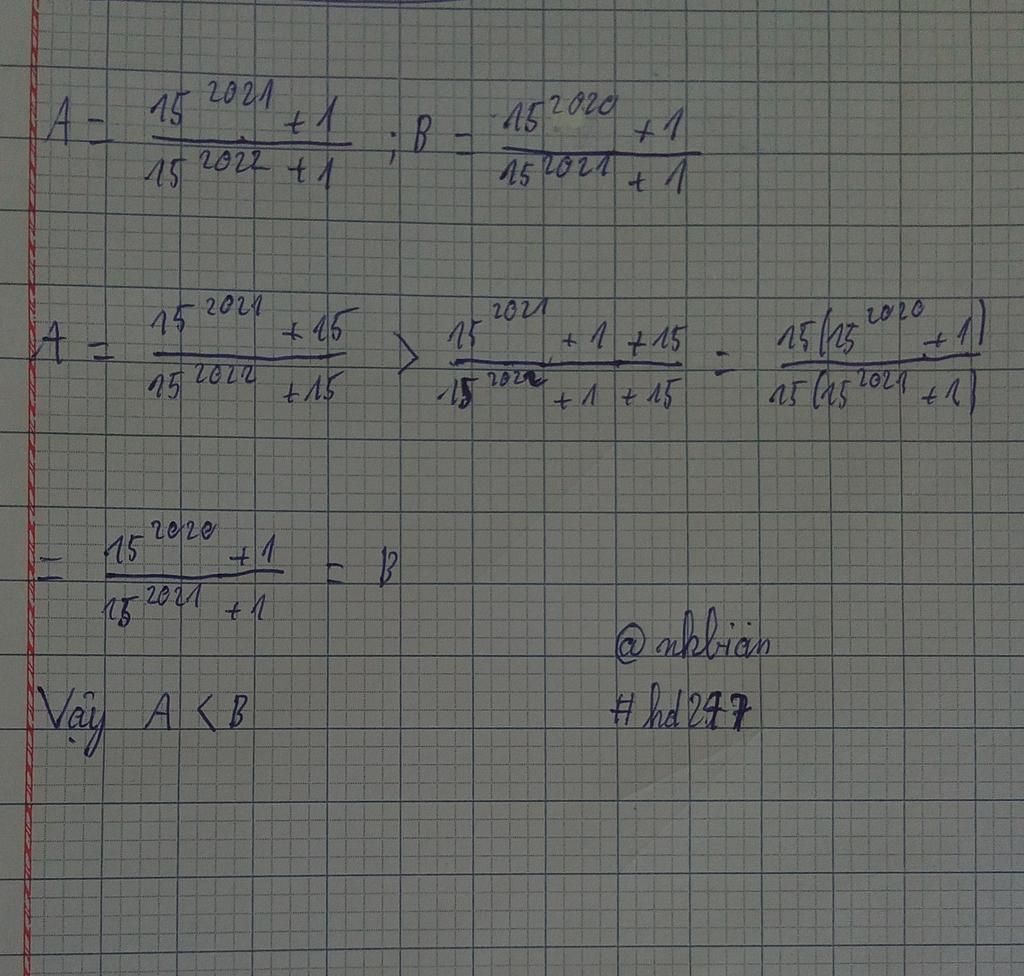 A = \frac{15^{2021} + 1}{15^{2022} + 1} ; B = \frac{15^{2020} + 1}{15^{2021} + 1}
A = \frac{15^{2021} + 15}{15^{2022} + 15} > \frac{15^{2021} + 1 + 15}{15^{2022} + 1 + 15} = \frac{15(15^{2020} + 1)}{15(15^{2021} + 1)}
= \frac{15^{2020} + 1}{15^{2021} + 1} = B
@nkbián
Vậy A < B #hd277